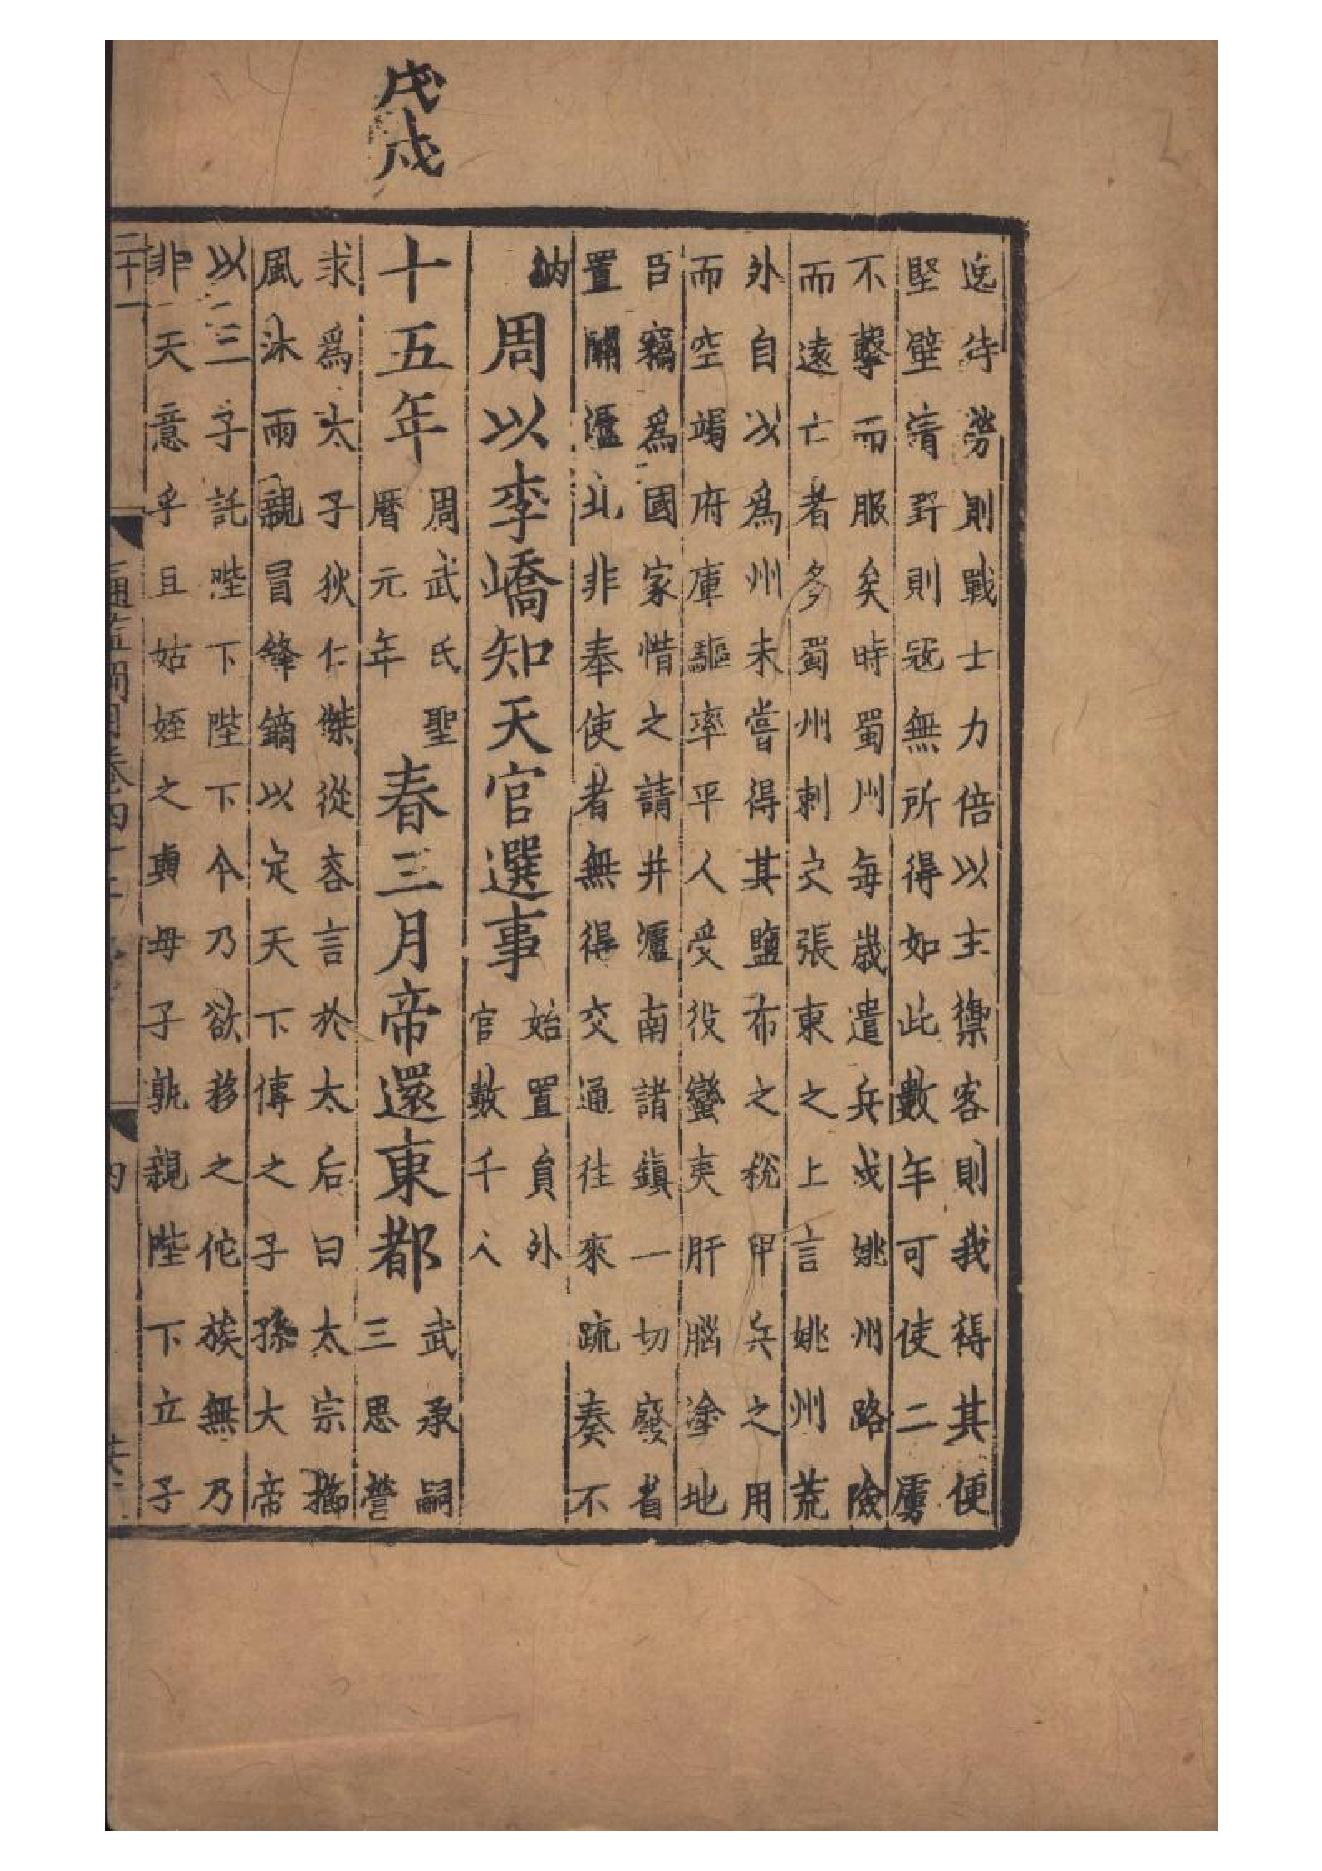 戊戌
逸待勞則戰士力倍以主禦客則我得其便
堅壁清野則寇無所得如此數年可使二虜
不擊而服矣時蜀川每歲遣兵戍姚州路險
而遠亡者多蜀州刺史張東之上言姚州荒
外自以爲州未嘗得其鹽布之稅甲兵之用
而空竭府庫驅率平人受役蠻夷肝腦塗地
臣竊爲國家惜之請井瀘南諸鎮一切廢省
置關瀘北非奉使者無得交通往來疏奏不
納
周以李嶠知天官選事
始置員外
官數千人
十五年
周武氏聖
曆元年
春三月帝還東都
武承嗣
三思營
求爲太子狄仁傑從容言於太后曰太宗櫛
風沐雨親冒鋒鏑以定天下傳之子孫大帝
以二子託陛下陛下今乃欲移之佗族無乃
非天意乎且姑姪之與母子孰親陛下立子
二十一
通鑑綱目卷四十二